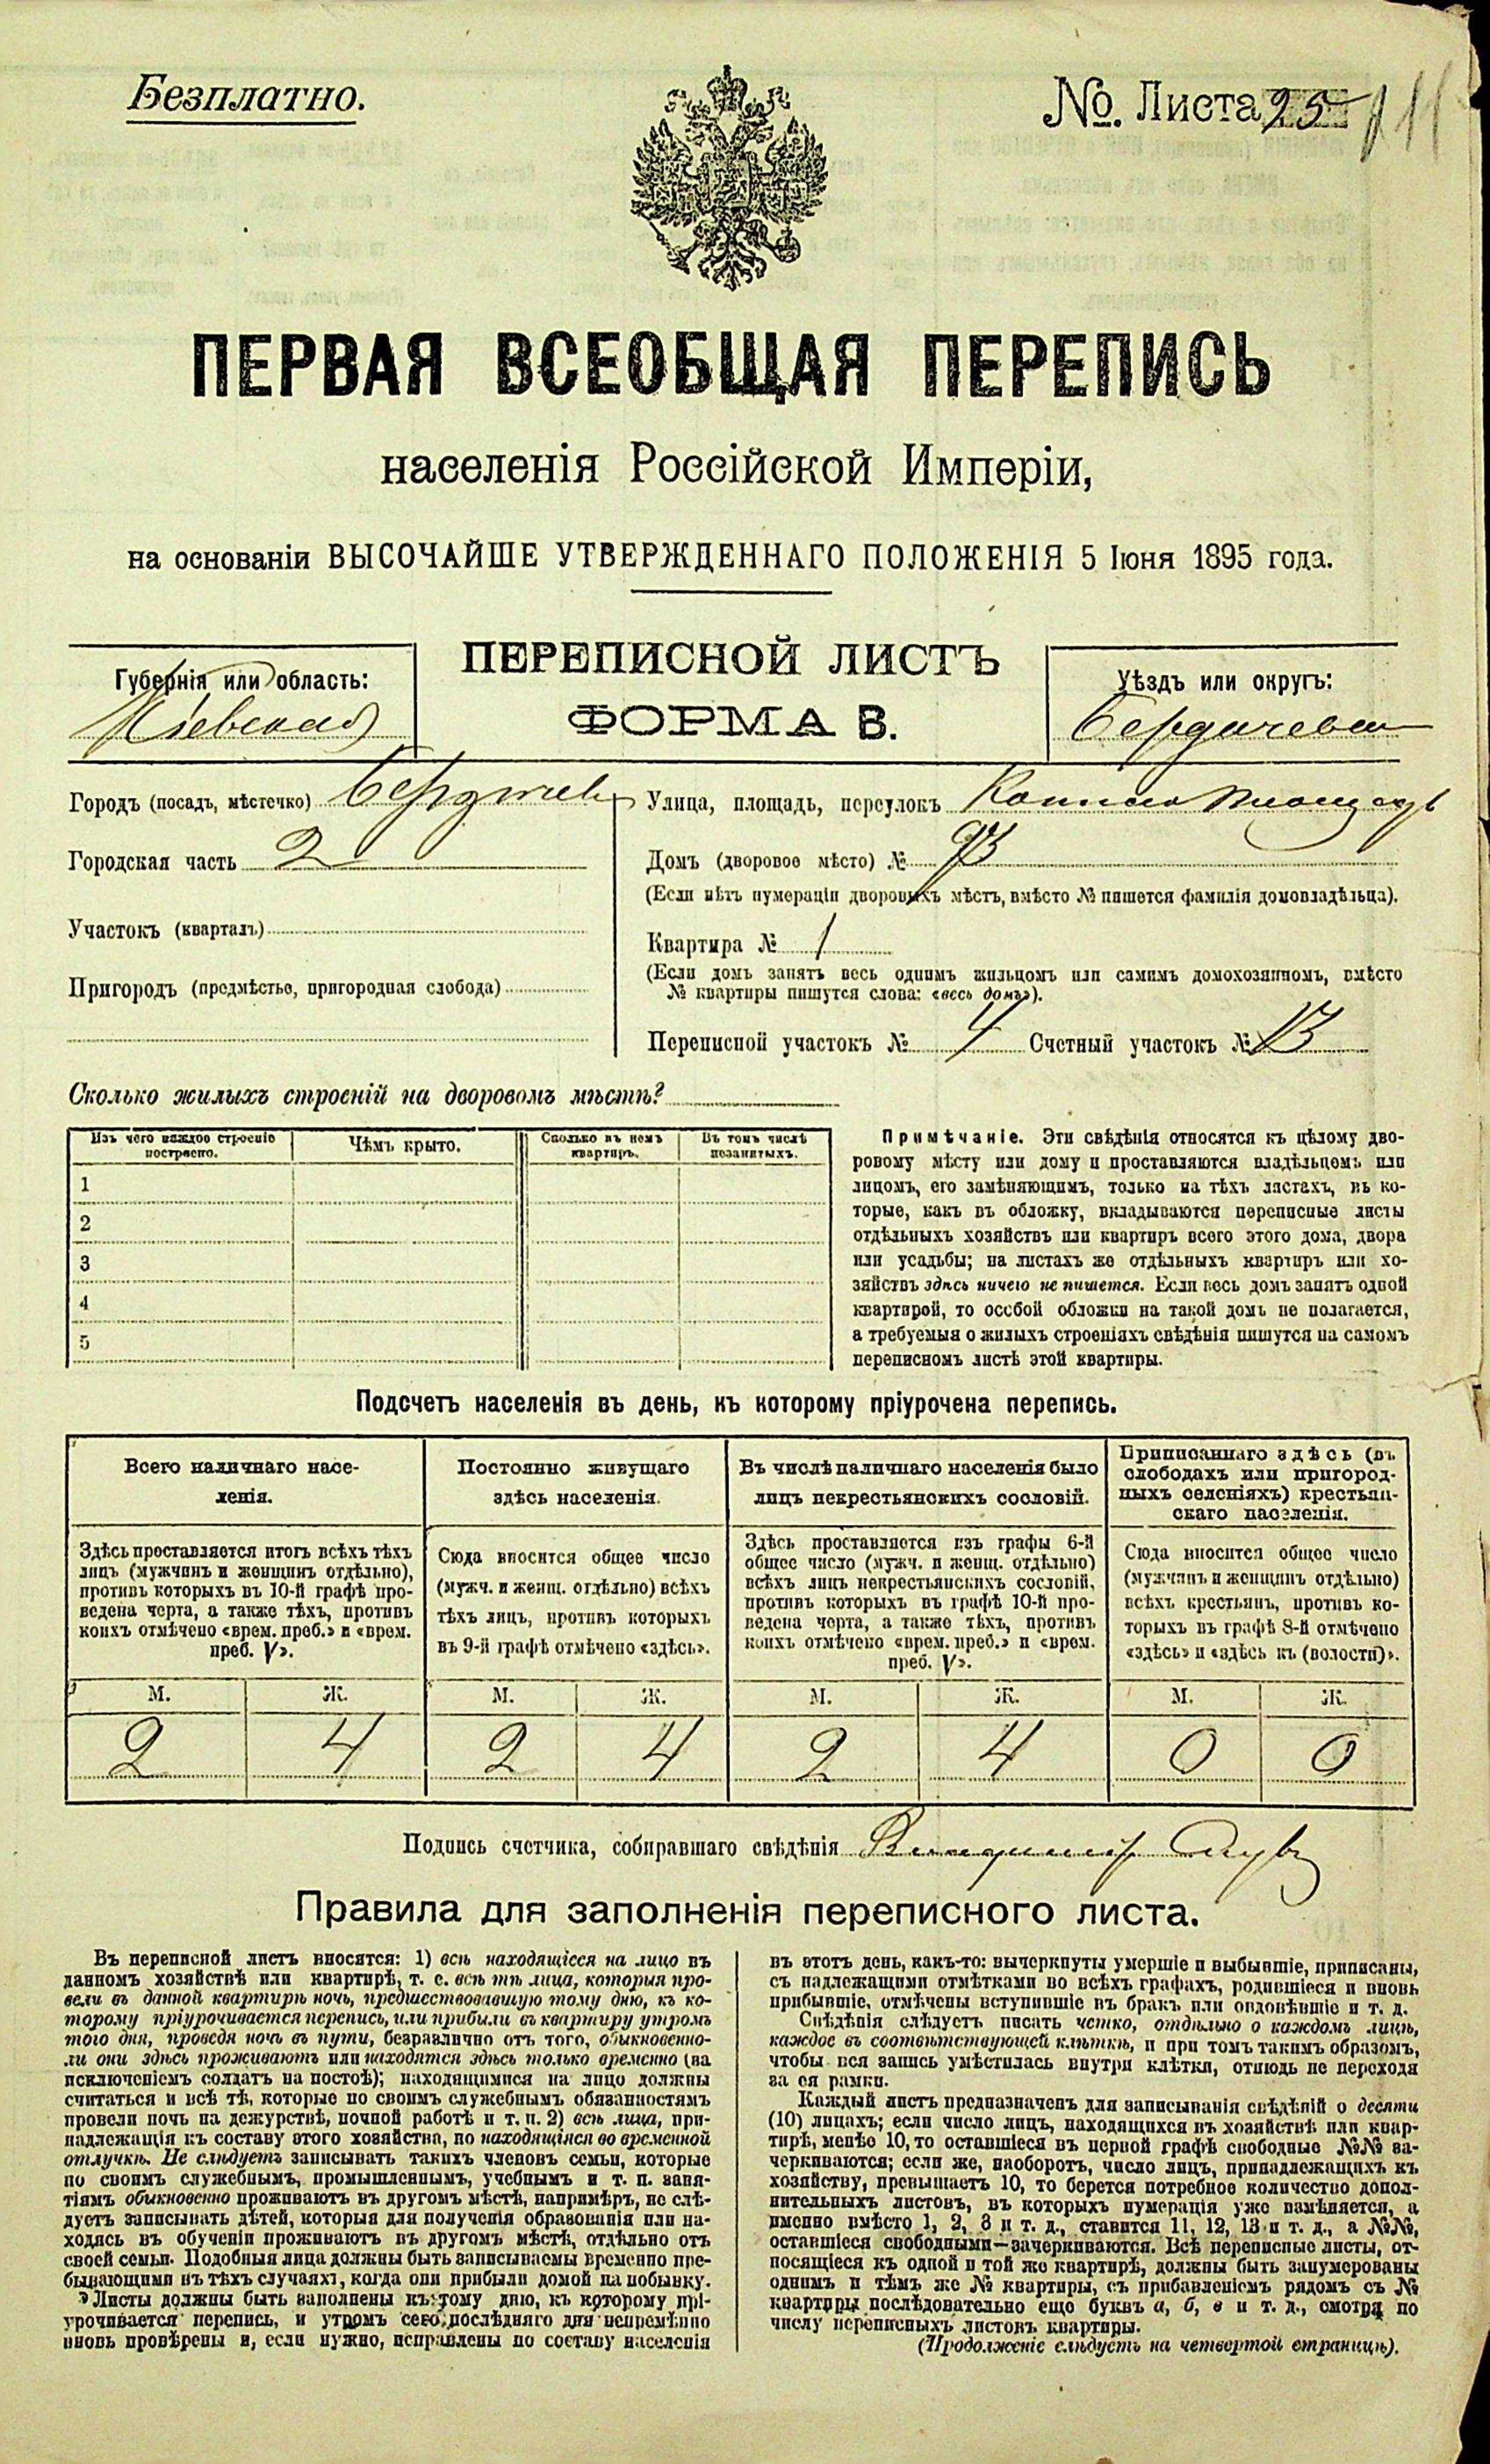 Безплатно.
№. Листа 25
11
ПЕРВАЯ ВСЕОБЩАЯ ПЕРЕПИСЬ
населенія Россійской Имперіи,
на основаніи ВЫСОЧАЙШЕ УТВЕРЖДЕННАГО ПОЛОЖЕНІЯ 5 Іюня 1895 года.
ПЕРЕПИСНОЙ ЛИСТЪ
ФОРМА В.
Губернія или область:
Кіевская
Уѣздъ или округъ:
Бердичевск
Городъ (посадъ, мѣстечко) Бердичевъ
Городская часть 2
Участокъ (кварталъ)
Пригородъ (предмѣстье, пригородная слобода)
Улица, площадь, переулокъ площадь
Домъ (дворовое мѣсто) № 93
(Если нѣтъ нумераціи дворовыхъ мѣстъ, вмѣсто № пишется фамилія домовладѣльца).
Квартира № 1
(Если домъ занятъ весь однимъ жильцомъ или самимъ домохозяиномъ, вмѣсто
№ квартиры пишутся слова: «весь домъ»).
Переписной участокъ № 4 Счетный участокъ № 13
Сколько жилыхъ строеній на дворовомъ мѣстѣ?
Изъ чего каждое строеніе
построено.
Чѣмъ крыто.
Сколько въ немъ
квартиръ.
Въ томъ числѣ
незанятыхъ.
1
2
3
4
5
Примѣчаніе. Эти свѣдѣнія относятся къ цѣлому дво-
ровому мѣсту или дому и проставляются владѣльцемъ или
лицомъ, его замѣняющимъ, только на тѣхъ листахъ, въ ко-
торые, какъ въ обложку, вкладываются переписные листы
отдѣльныхъ хозяйствъ или квартиръ всего этого дома, двора
или усадьбы; на листахъ же отдѣльныхъ квартиръ или хо-
зяйствъ здѣсь ничего не пишется. Если весь домъ занятъ одной
квартирой, то особой обложки на такой домъ не полагается,
а требуемыя о жилыхъ строеніяхъ свѣдѣнія пишутся на самомъ
переписномъ листѣ этой квартиры.
Подсчетъ населенія въ день, къ которому пріурочена перепись.
Всего наличнаго насе-
ленія.
Здѣсь проставляется итогъ всѣхъ тѣхъ
лицъ (мужчинъ и женщинъ отдѣльно),
противъ которыхъ въ 10-й графѣ про-
ведена черта, а также тѣхъ, противъ
коихъ отмѣчено «врем. преб.» и «врем.
преб. V».
Постоянно живущаго
здѣсь населенія.
Сюда вносится общее число
(мужч. и женщ. отдѣльно) всѣхъ
тѣхъ лицъ, противъ которыхъ
въ 9-й графѣ отмѣчено «здѣсь».
Въ числѣ наличнаго населенія было
лицъ некрестьянскихъ сословій.
Здѣсь проставляется изъ графы 6-й
общее число (мужч. и женщ. отдѣльно)
всѣхъ лицъ некрестьянскихъ сословій,
противъ которыхъ въ графѣ 10-й про-
ведена черта, а также тѣхъ, противъ
коихъ отмѣчено «врем. преб.» и «врем.
преб. V».
Приписаннаго здѣсь (въ
слободахъ или пригород-
ныхъ селеніяхъ) крестьян-
скаго населенія.
Сюда вносится общее число
(мужчинъ и женщинъ отдѣльно)
всѣхъ крестьянъ, противъ ко-
торыхъ въ графѣ 8-й отмѣчено
«здѣсь» и «здѣсь къ (волости)».
М. Ж. М. Ж. М. Ж. М. Ж.
2 4 2 4 2 4 0 0
Подпись счетчика, собиравшаго свѣдѣнія Владиміръ
Правила для заполненія переписного листа.
Въ переписной листъ вносятся: 1) всѣ находящіеся на лицо въ
данномъ хозяйствѣ или квартирѣ, т. е. всѣ тѣ лица, которыя про-
вели въ данной квартирѣ ночь, предшествовавшую тому дню, къ ко-
торому пріурочивается перепись, или прибыли въ квартиру утромъ
того дня, проведя ночь въ пути, безразлично отъ того, обыкновенно-
ли они здѣсь проживаютъ или находятся здѣсь только временно (за
исключеніемъ солдатъ на постоѣ); находящимися на лицо должны
считаться и всѣ тѣ, которые по своимъ служебнымъ обязанностямъ
провели ночь на дежурствѣ, ночной работѣ и т. п. 2) всѣ лица, при-
надлежащія къ составу этого хозяйства, но находящіяся во временной
отлучкѣ. Не слѣдуетъ записывать такихъ членовъ семьи, которые
по своимъ служебнымъ, промышленнымъ, учебнымъ и т. п. заня-
тіямъ обыкновенно проживаютъ въ другомъ мѣстѣ, напримѣръ, не слѣ-
дуетъ записывать дѣтей, которыя для полученія образованія или на-
ходясь въ обученіи проживаютъ въ другомъ мѣстѣ, отдѣльно отъ
своей семьи. Подобныя лица должны быть записываемы временно пре-
бывающими въ тѣхъ случаяхъ, когда они прибыли домой на побывку.
Листы должны быть заполнены къ тому дню, къ которому прі-
урочивается перепись, и утромъ сего послѣдняго дня непремѣнно
вновь провѣрены и, если нужно, исправлены по составу населенія
въ этотъ день, какъ-то: вычеркнуты умершіе и выбывшіе, приписаны,
съ надлежащими отмѣтками во всѣхъ графахъ, родившіеся и вновь
прибывшіе, отмѣчены вступившіе въ бракъ или овдовѣвшіе и т. д.
Свѣдѣнія слѣдуетъ писать четко, отдѣльно о каждомъ лицѣ,
каждое въ соотвѣтствующей клѣткѣ, и при томъ такимъ образомъ,
чтобы вся запись умѣстилась внутри клѣтки, отнюдь не переходя
за ея рамки.
Каждый листъ предназначенъ для записыванія свѣдѣній о десяти
(10) лицахъ; если число лицъ, находящихся въ хозяйствѣ или квар-
тирѣ, менѣе 10, то оставшіеся въ первой графѣ свободные №№ за-
черкиваются; если же, наоборотъ, число лицъ, принадлежащихъ къ
хозяйству, превышаетъ 10, то берется потребное количество допол-
нительныхъ листовъ, въ которыхъ нумерація уже измѣняется, а
именно вмѣсто 1, 2, 3 и т. д., ставится 11, 12, 13 и т. д., а №№,
оставшіеся свободными—зачеркиваются. Всѣ переписные листы, от-
носящіеся къ одной и той же квартирѣ, должны быть занумерованы
однимъ и тѣмъ же № квартиры, съ прибавленіемъ рядомъ съ №
квартиры послѣдовательно еще буквъ а, б, в и т. д., смотря по
числу переписныхъ листовъ квартиры.
(Продолженіе слѣдуетъ на четвертой страницѣ).